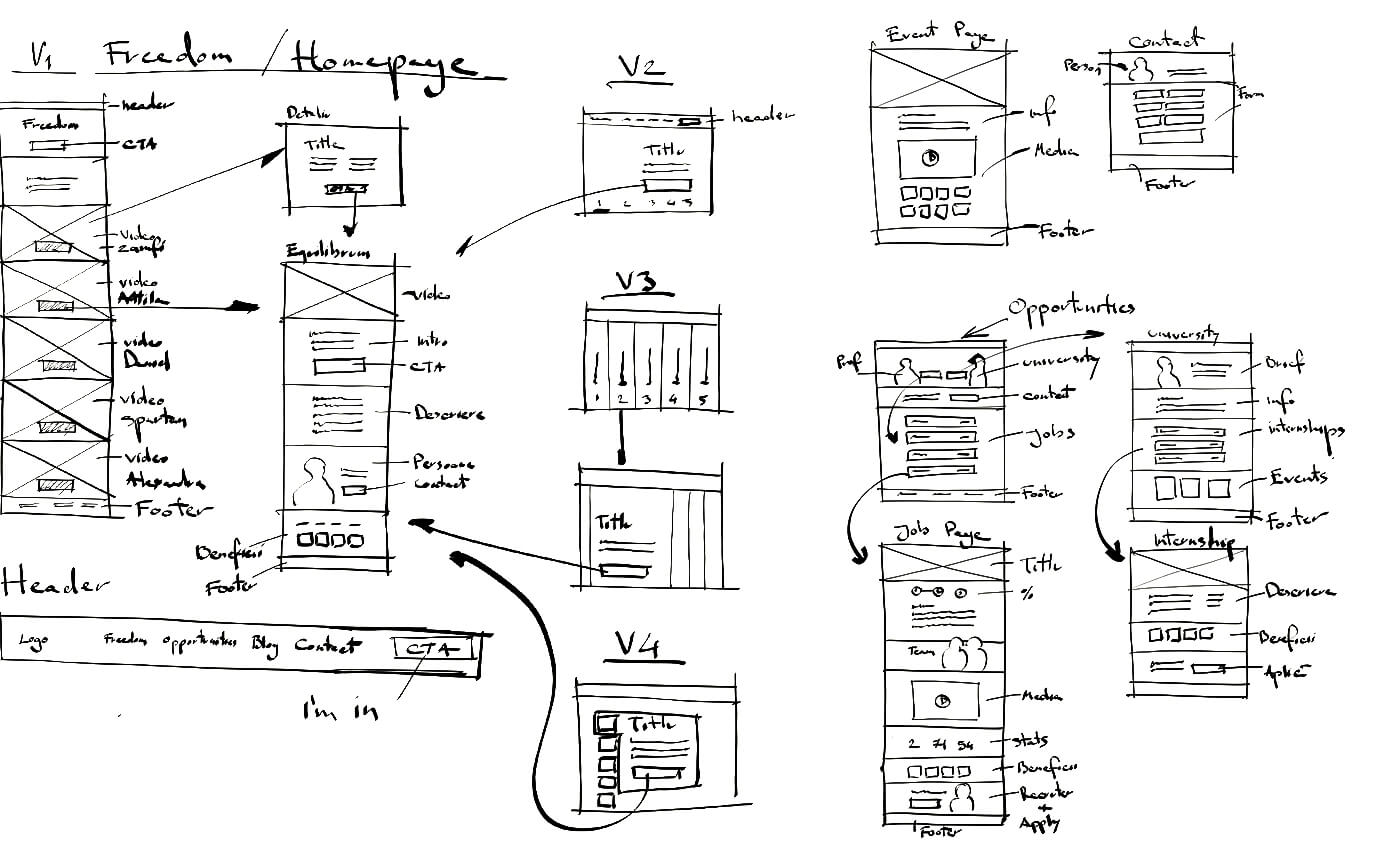 V1 Freedom / Homepage
header
Freedom
CTA
video
Zamfi
video
Attila
video
Daniel
video
Spartan
video
Alexandra
Footer
Detalii
Title
Equilibrum
video
Intro
CTA
Descriere
Persoana
Contact
Beneficii
Footer
Header
Logo Freedom opportunities Blog Contact CTA
I'm in
V2
header
Title
1 2 3 4 5
V3
1 2 3 4 5
Title
V4
Title
Event Page
Info
Media
Footer
Contact
Person
Form
Footer
Opportunities
Prof
university
contact
jobs
Footer
University
Brief
Info
internships
Events
Footer
Job Page
Title
%
Team
Media
2 74 54
Stats
Beneficii
Recruiter
+
Apply
Footer
Internship
Descriere
Beneficii